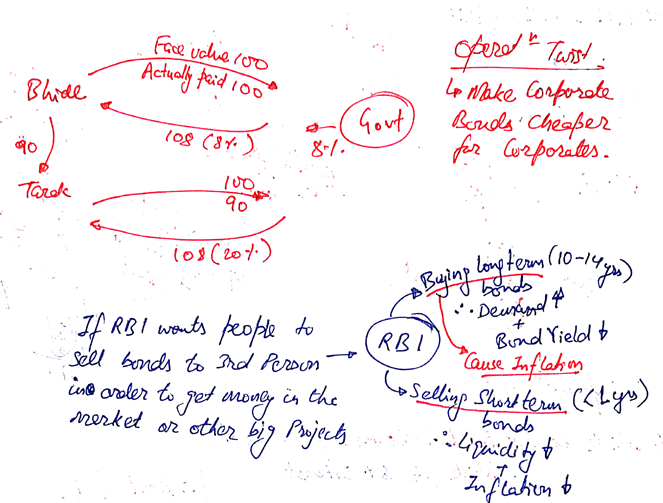 Face value 100
Actually paid 100
Bhide
108 (8%)
8%
Govt
90
Tarak
100
90
108 (20%)
Operatⁿ Twist
↳ Make Corporate
Bonds Cheaper
for Corporates.
If RBI wants people to
sell bonds to 3rd Person
in order to get money in the
market or other big Projects
RBI
Buying long term (10-14 yrs)
bonds
∴ Demand ↑
+
Bond Yield ↓
Cause Inflation
Selling Short term (<1 yrs)
bonds
∴ Liquidity ↓
+
Inflation ↓